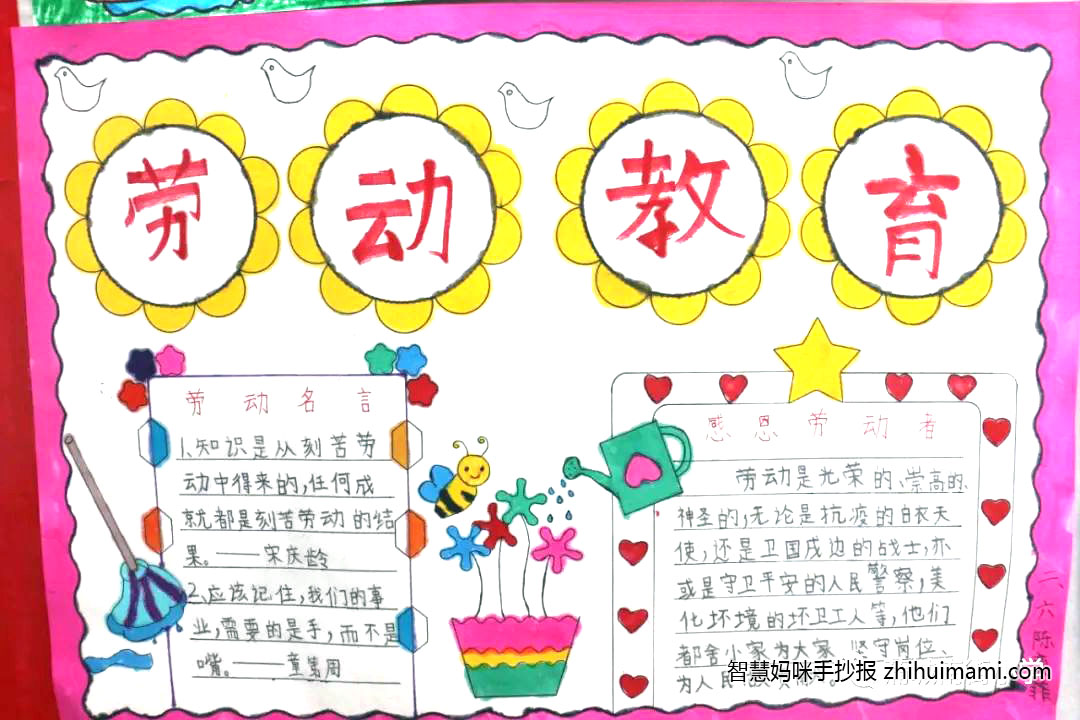 劳动教育
劳动名言
1、知识是从刻苦劳
动中得来的,任何成
就都是刻苦劳动的结
果。——宋庆龄
2、应该记住,我们的事
业,需要的是手,而不是
嘴。——童第周
感恩劳动者
劳动是光荣的、崇高的、
神圣的,无论是抗疫的白衣天
使,还是卫国戍边的战士,亦
或是守卫平安的人民警察,美
化环境的环卫工人等,他们
都舍小家为大家、坚守岗位、
为人民
二、六陈
智慧妈咪手抄报 zhihuimami.com